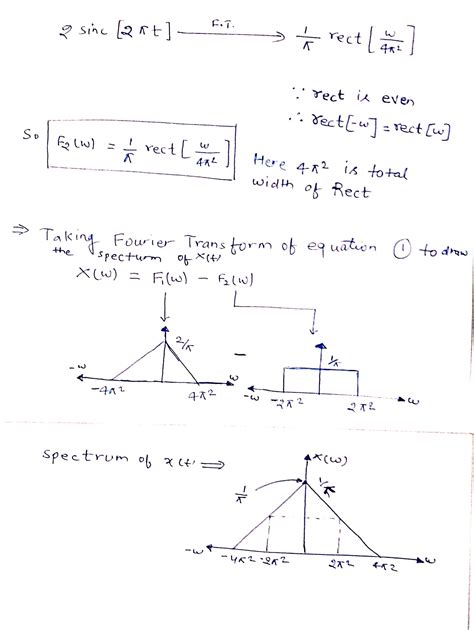 2 sinc [2πt] —F.T.→ 1/π rect [ω/4π²]
∵ rect is even
∴ rect[-ω] = rect[ω]
So F₂(ω) = 1/π rect [ω/4π²]
Here 4π² is total
width of Rect
⇒ Taking Fourier Transform of equation ① to draw
the specturm of x(t)
X(ω) = F₁(ω) - F₂(ω)
2/π
-ω
ω
-4π²
4π²
-
1/π
-ω
-2π²
2π²
ω
spectrum of x(t) ⇒
X(ω)
1/π
1/π
-ω
-4π²
-2π²
2π²
4π²
ω